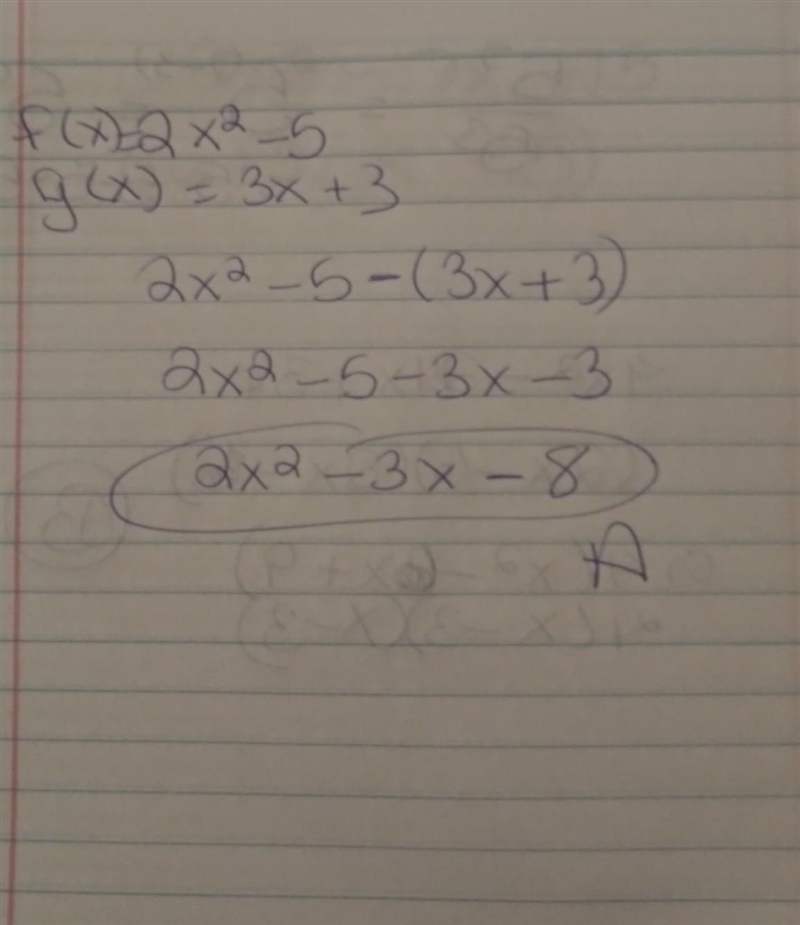 f(x)=2x² -5
g(x) = 3x+3
2x² -5-(3x+3)
2x² -5-3x-3
2x² -3x-8
A